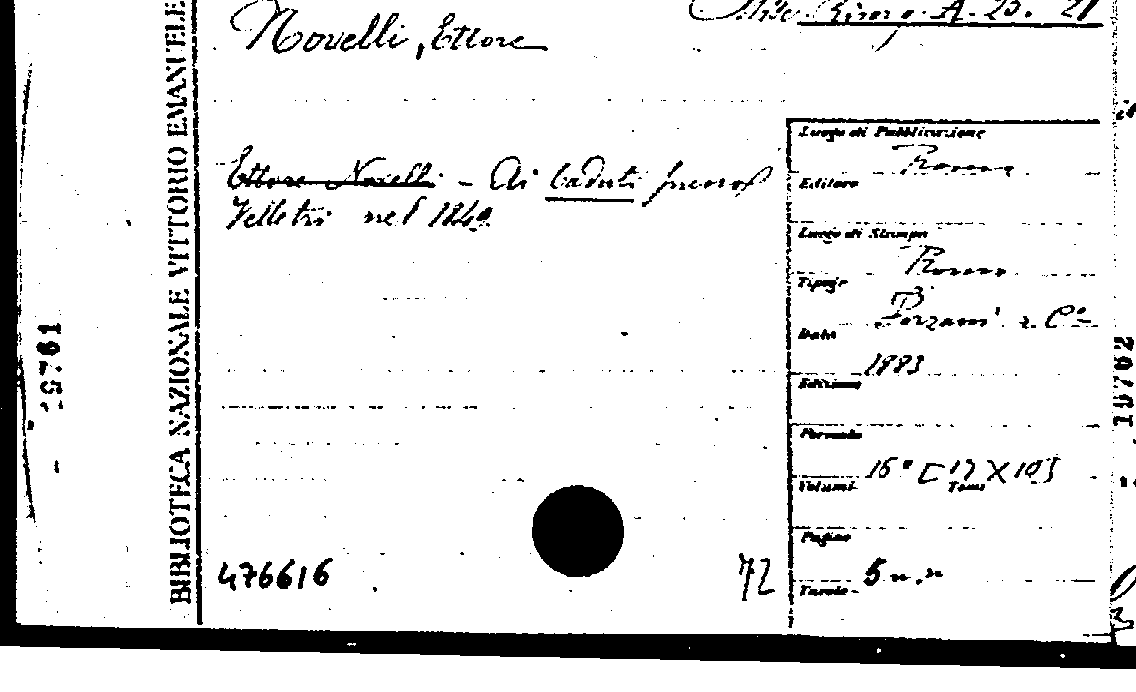 Misc. Risorg. A. 25. 21
Novelli, Ettore
Ettore Novelli - Ai Caduti presso
Velletri nel 1849.
Luogo di Pubblicazione
Roma
Editore
Luogo di Stampa
Roma
Tipogr.
Forzani e Cº
Data
1883
Edizione
Formato
16º [17 X 10]
Volumi Tomi
Pagine
5 n. n.
Tavole
476616
72
BIBLIOTECA NAZIONALE VITTORIO EMANUELE
19761
19762